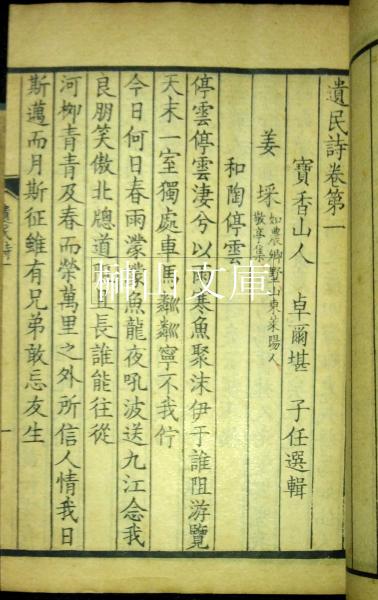 遺民詩卷第一
寶香山人 卓爾堪 子任選輯
姜埰 如農鄉墅山東萊陽人
敬亭集
和陶停雲
停雲停雲淒兮以雨寒魚聚沫伊于誰阻游覽
天末一室獨處車馬粼粼寧不我佇
今日何日春雨濛濛魚龍夜吼波送九江念我
良朋笑傲北牕道 長誰能往從
河柳青青及春而榮萬里之外所信人情我日
斯邁而月斯征雖有兄弟敢忘友生
榊山文庫